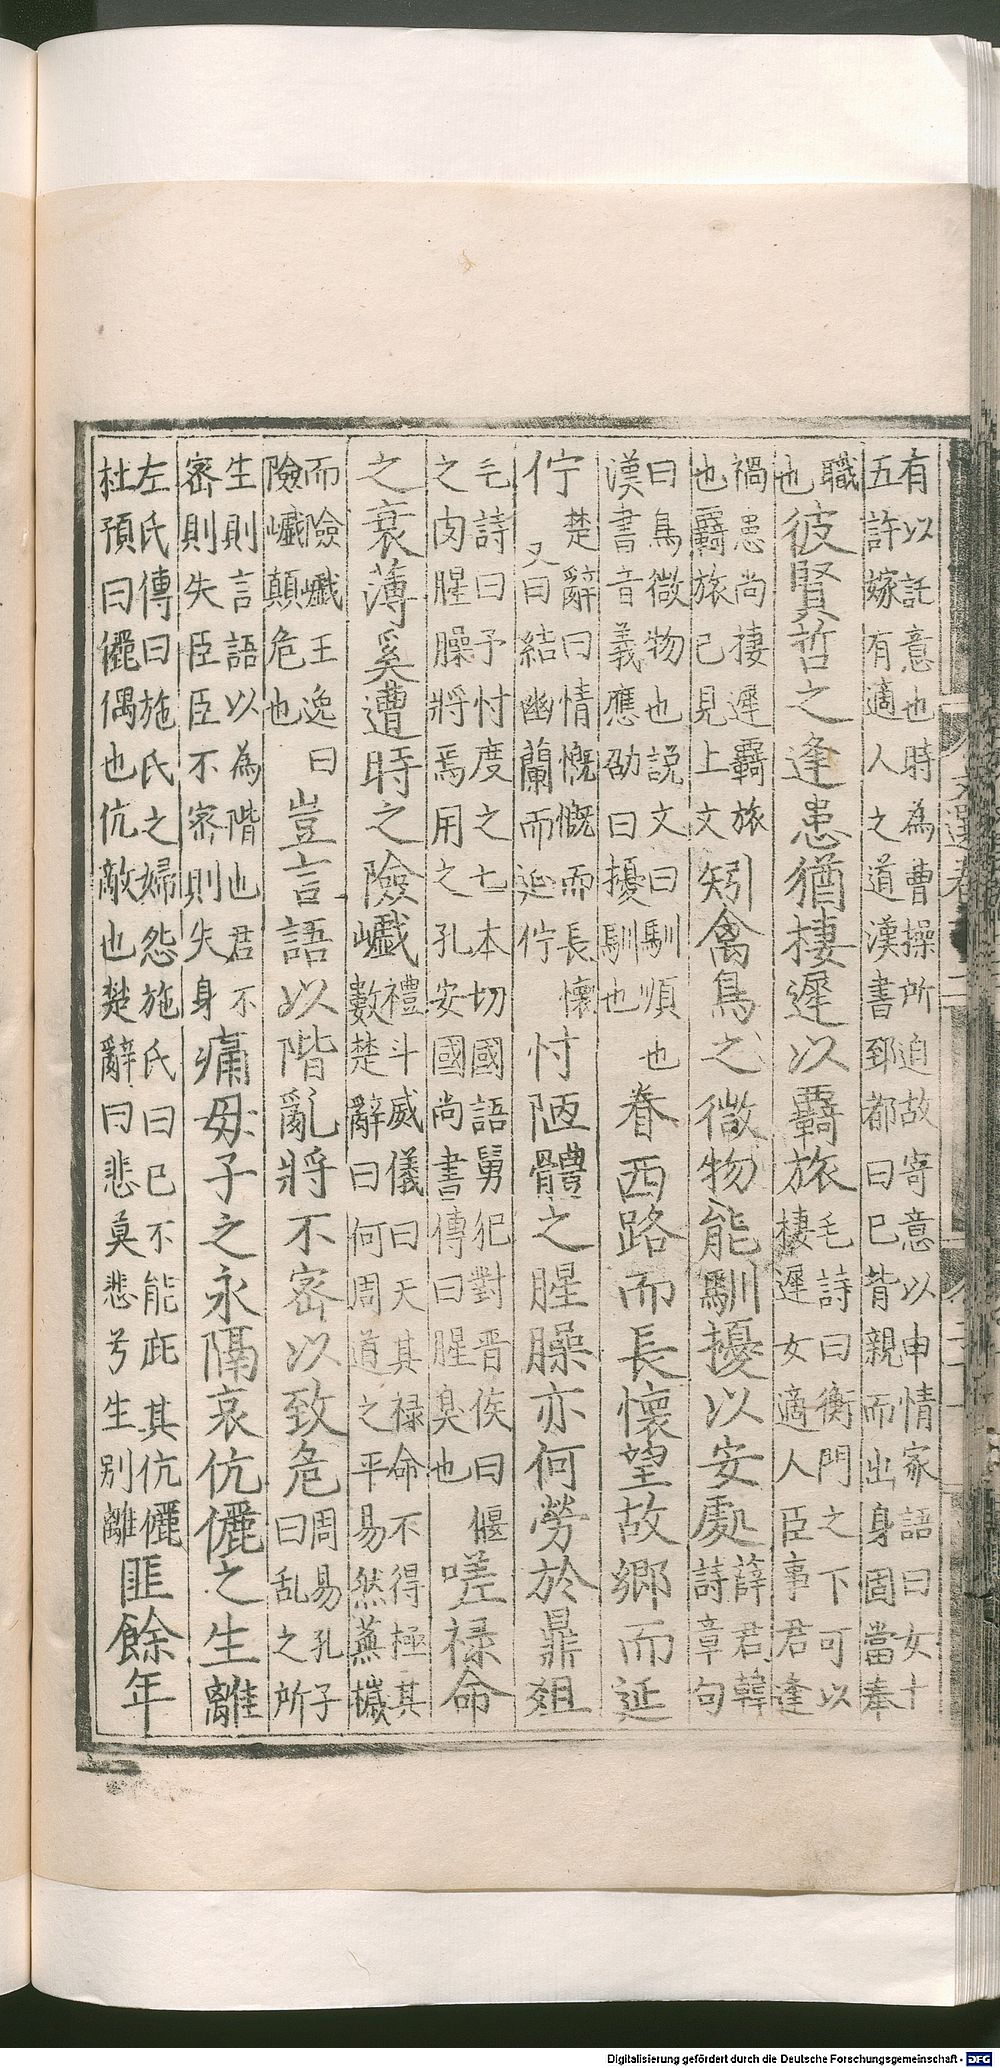 有以託意也時為曹操所迫故寄意以申情家語曰女十
五許嫁有適人之道漢書郅都曰已背親而出身固當奉
職
也
彼賢哲之逢患猶棲遲以羈旅
毛詩曰衡門之下可以
棲遲女適人臣事君逢
禍患尚棲遲羈旅
也羈旅已見上文
矧禽鳥之微物能馴擾以安處
薛君韓
詩章句
曰鳥微物也說文曰馴順也
漢書音義應劭曰擾馴也
眷西路而長懷望故鄉而延
佇
楚辭曰情慨慨而長懷
又曰結幽蘭而延佇
忖陋體之腥臊亦何勞於鼎俎
毛詩曰予忖度之七本切國語舅犯對晉侯曰偃
之肉腥臊將焉用之孔安國尚書傳曰腥臭也
嗟祿命
之衰薄奚遭時之險巇
禮斗威儀曰天其祿命不得極其
數楚辭曰何周道之平易然蕪穢
而險巇王逸曰
險巇顛危也
豈言語以階亂將不密以致危
周易孔子
曰乱之所
生則言語以為階也君不
密則失臣臣不密則失身
痛母子之永隔哀伉儷之生離
左氏傳曰施氏之婦怨施氏曰已不能庇其伉儷
杜預曰儷偶也伉敵也楚辭曰悲莫悲兮生別離
匪餘年
Digitalisierung gefördert durch die Deutsche Forschungsgemeinschaft - DFG